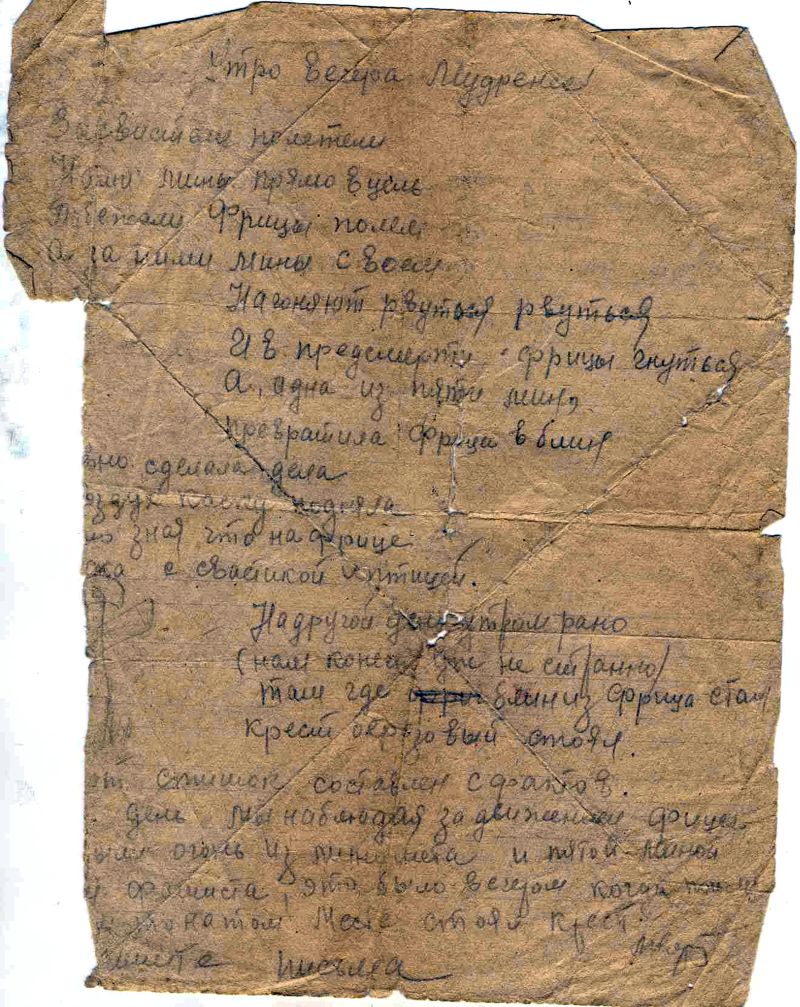 Утро вечера Мудренее
Засвистали полетели
Наши мины прямо в цель
Побежали Фрицы полем
А за ними мины с воем
Нагоняют рвуться рвуться
И в предсмерти фрицы гнуться
А одна из пяти мин,
превратила Фрица в блин
вно сделала дела
оздух каску подняла
зная что на фрице
с свастикой и птицей.
На другой день утром рано
(нам конечно уж не странно)
там где блин из фрица стал
крест берёзовый стоял.
от стишок составлен с фактов.
день мы наблюдая за движением фрицев
огонь из миномёта и пятой миной
фашиста, это было вечером когда
на том Месте стоял крест.
март
пишите письма